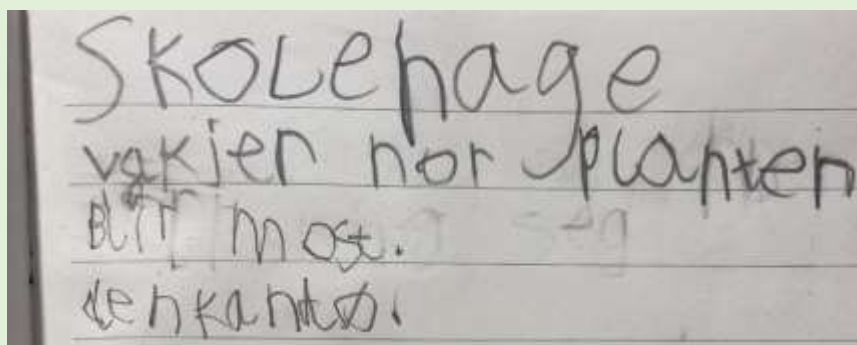 Skolehage
vakjer nor planten
Blir most.
den kan dø.